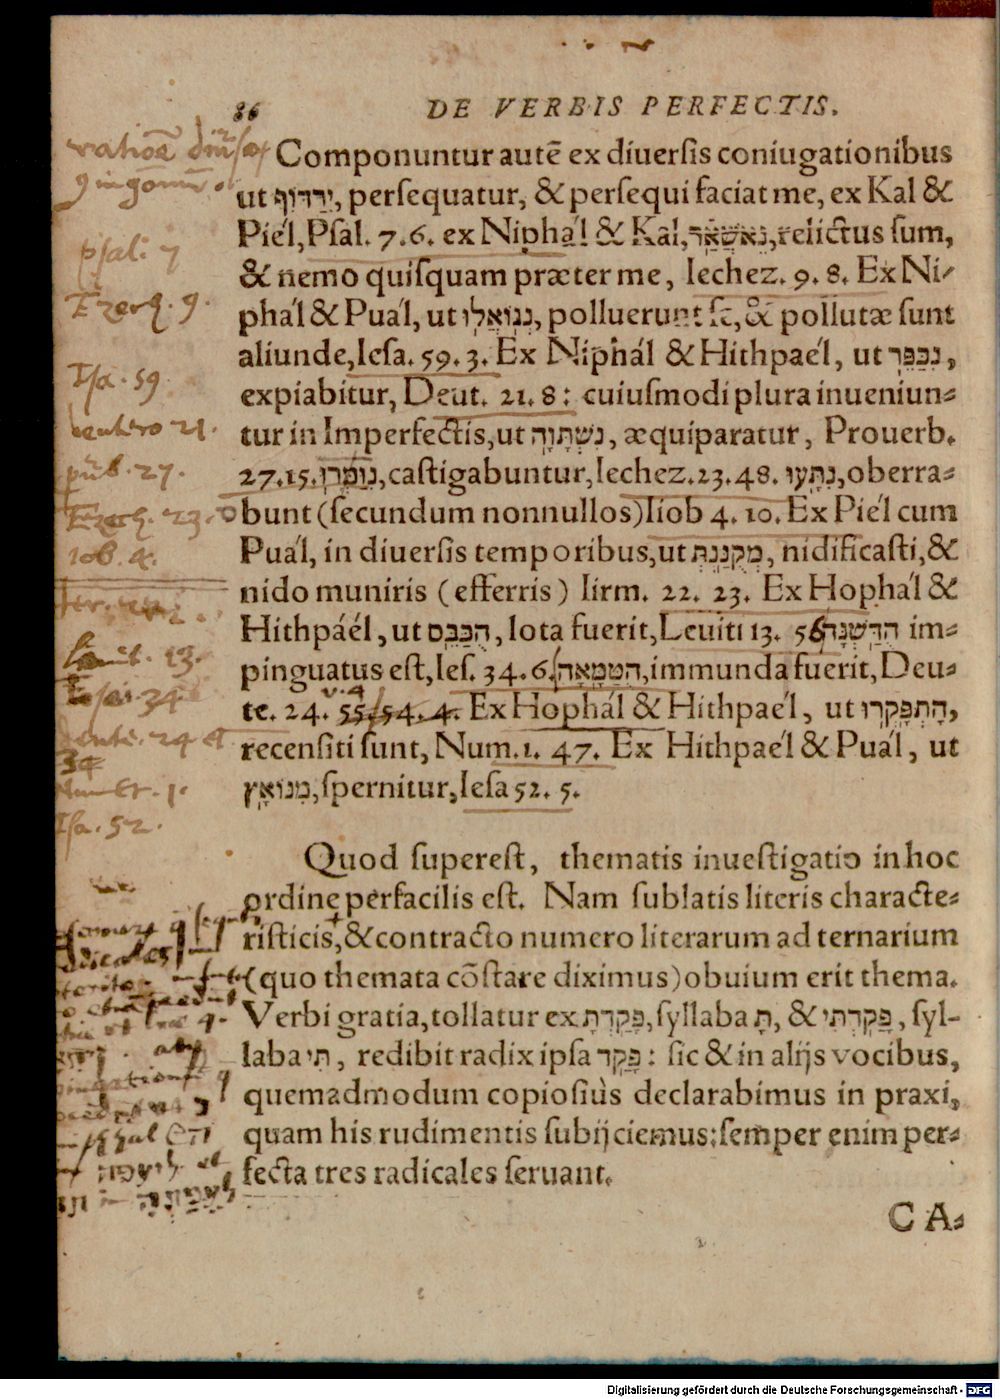 86
DE VERBIS PERFECTIS.
Componuntur autē ex diuersis coniugationibus
ut יִרַדּוֹף, persequatur, & persequi faciat me, ex Kal &
Piél, Psal. 7. 6. ex Niphál & Kal, נֵאשֲׁאַר, relictus sum,
& nemo quisquam præter me, Iechez. 9. 8. Ex Ni-
phál & Puál, ut נְגוֹאֲלוּ, polluerunt se, & pollutæ sunt
aliunde, Iesa. 59. 3. Ex Niphál & Hithpaél, ut נִכַּפֵּר,
expiabitur, Deut. 21. 8: cuiusmodi plura inueniun=
tur in Imperfectis, ut נִשְׁתָּוָה, æquiparatur, Prouerb.
27. 15. נִוַּסְּרוּ, castigabuntur, Iechez. 23. 48. נִתָּעוּ, oberra=
bunt (secundum nonnullos) Iiob 4. 10. Ex Piél cum
Puál, in diuersis temporibus, ut מְקֻנַּנְתְּ, nidificasti, &
nido muniris (efferris) Iirm. 22. 23. Ex Hophál &
Hithpáél, ut הֻכַּבֵּס, lota fuerit, Leuiti 13. 56 הֻדַּשְׁנָה im=
pinguatus est, Ies. 34. 6. הֻטַּמָּאָה, immunda fuerit, Deu=
te. 24. v. 4 55. 54. 4. Ex Hophál & Hithpaél, ut הָתְפָּקְדוּ,
recensiti sunt, Num. 1. 47. Ex Hithpaél & Puál, ut
מִנּוֹאָץ, spernitur, Iesa 52. 5.
Quod superest, thematis inuestigatio in hoc
ordine perfacilis est. Nam sublatis literis characte=
risticis, & contracto numero literarum ad ternarium
(quo themata cōstare diximus) obuium erit thema.
Verbi gratia, tollatur ex פָּקַדְתָּ, syllaba תָּ, & פָּקַדְתִּי, syl-
laba תִּי, redibit radix ipsa פָּקַד: sic & in alijs vocibus,
quemadmodum copiosiùs declarabimus in praxi,
quam his rudimentis subijciemus: semper enim per=
fecta tres radicales seruant.
CA=
psal: 7
Ezech. 9.
Isa. 59
deutero 21.
Ezech. 23.
Iob. 4.
Levit. 13.
Iesai. 34.
Deute. 24 4
34
Numer. 1.
Isa. 52.
Digitalisierung gefördert durch die Deutsche Forschungsgemeinschaft - DFG